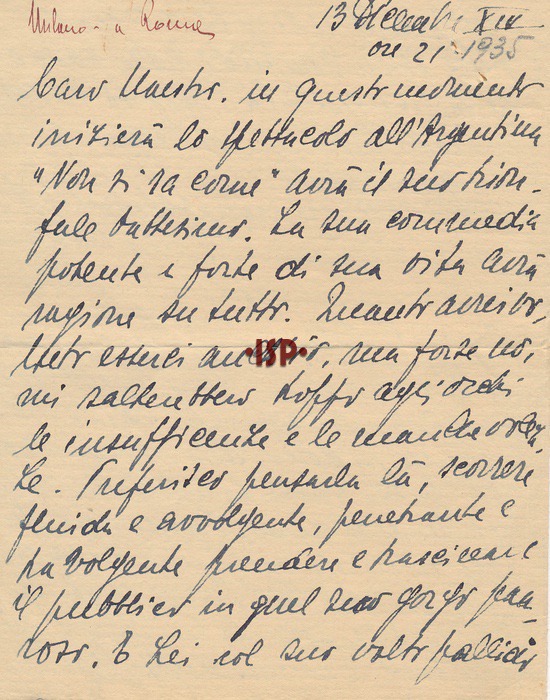 Milano - a Roma
13 Dicembre XIV
ore 21 1935
Caro Maestro. in questo momento
inizierà lo spettacolo all'Argentina
"Non si sa come" avrà il suo trion-
fale battesimo. La sua commedia
potente e forte di sua vita avrà
ragione su tutto. Quanto avrei vo,
luto esserci anch'io, ma forse no,
mi salterebbero troppo agli occhi
le insufficenze e le manchevolez,
ze. Preferisco pensarla là, scorrere
fluida e avvolgente, penetrante e
travolgente prendere e trascinare
il pubblico in quel suo gorgo pau-
roso. E Lei col suo volto pallido
BP